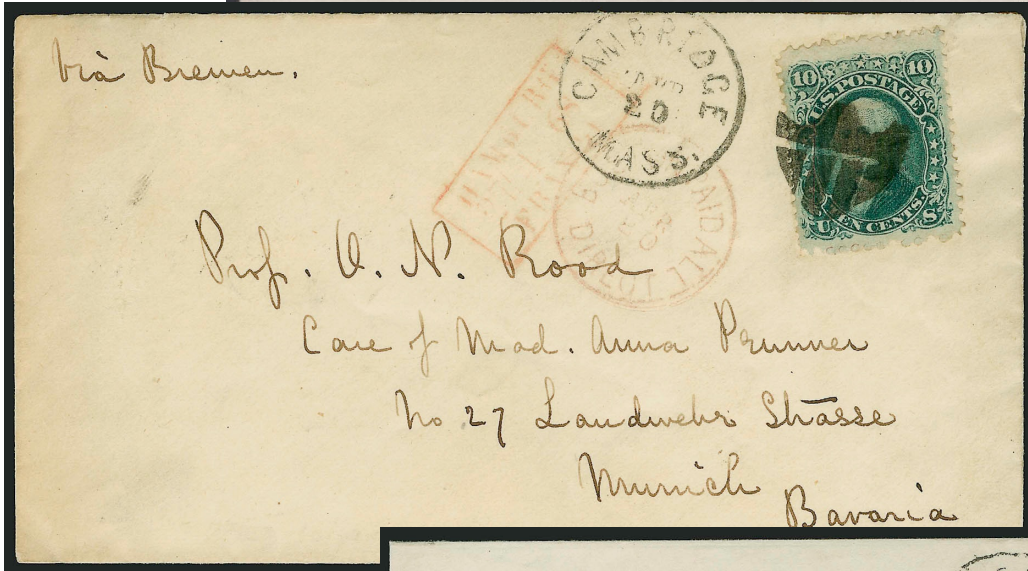 via Bremen.
CAMBRIDGE
20
MASS.
10 10
U.S. POSTAGE
TEN CENTS.
U S
FRANCO
PAID ALL
Prof. O. N. Rood
Care of Mad. Anna Prunner
No. 27 Landwehr Strasse
Munich
Bavaria